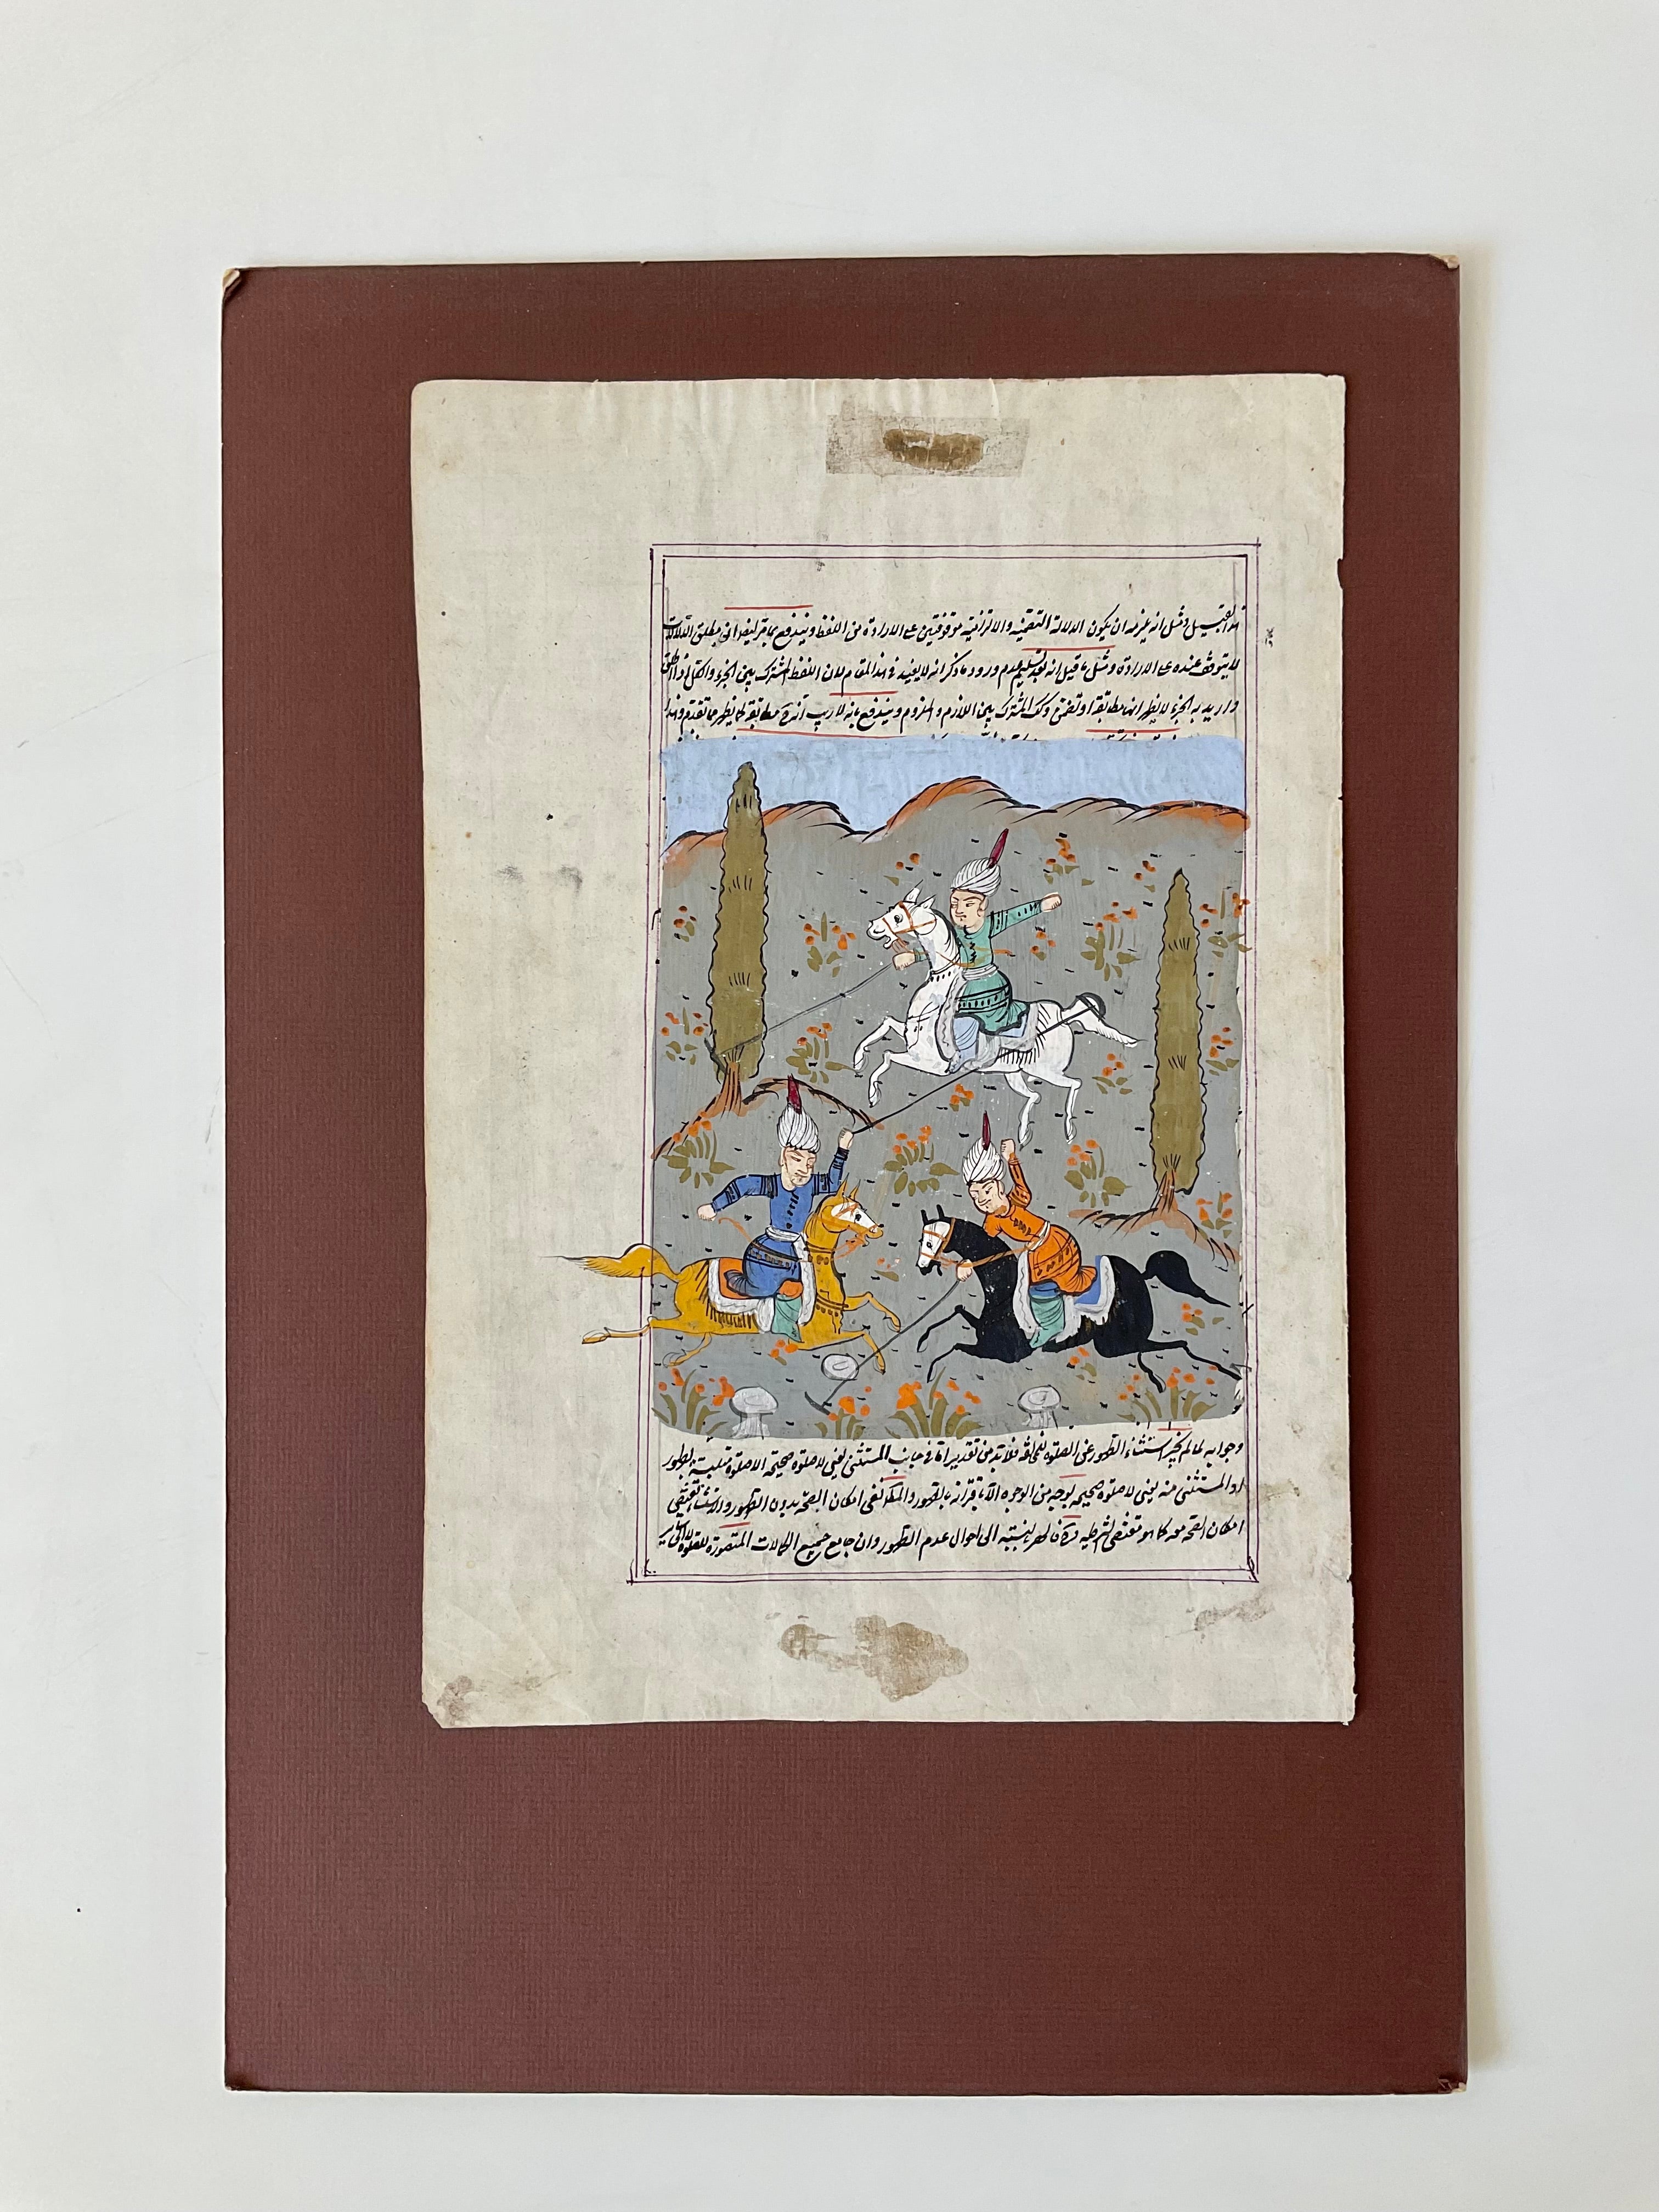 هذا القبيل ومثل انه يلزمه ان يكون الدلالة التضمنية والالتزامية موقوفتين على الارادة من اللفظ ويندفع بما قر ليضر انى مطلق الدلالات
لا يتوقف عنده على الارادة ومثل ما قيل انه بعد تسليم عدم ورود ما ذكر انه لا يفيد فى هذا المقام لان اللفظ المشترك بين الجزء والكل اذا اطلق
واريد به الجزء لا يظهر انها مطابقة او تضمن وكك المشترك بين اللازم والملزوم ويندفع بانه لا ريب انه ح مطابقة لما يظهر مما تقدم وهذا
وجوابه لما لم يجز استثناء الطهور عن الصلوة فلا بد من تقدير اما فى جانب المستثنى يعنى لا صلوة صحيحة الا صلوة متلبسة بطهور
او المستثنى منه يعنى لا صلوة صحيحة بوجه من الوجوه الا باقترانه بالطهور والمكم نفى امكان الصحة بدون الطهور والاستثناء يقتضى
امكان الصحة معه كما هو مقتضى الشرطية بالنسبة الى احوال عدم الطهور وان جامع جميع الكمالات المتصورة للصلوة